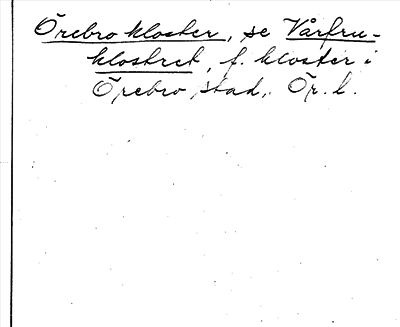 Örebro kloster, se Vårfru-
klostret, f. kloster i
Örebro stad, Ör. l.